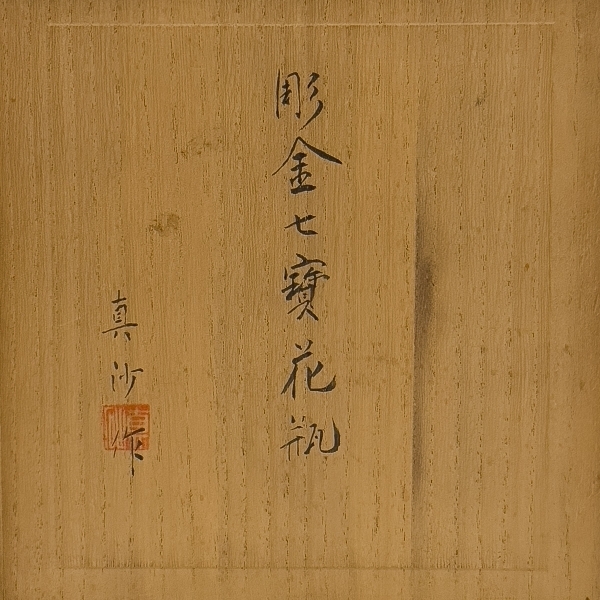 彫金七寶花瓶
真沙作